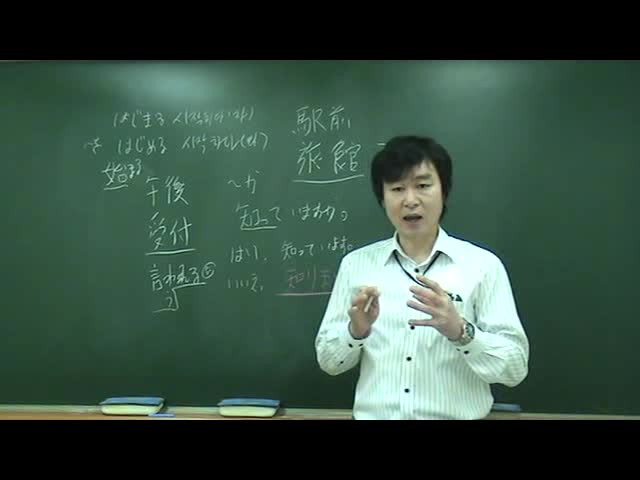 はじまる 시작되다(자)
はじめる 시작하다(타)
始まる
午後
受付
言われる⑤
駅前
旅館
～か
知っていますか。
はい、知っています。
いいえ、知りま